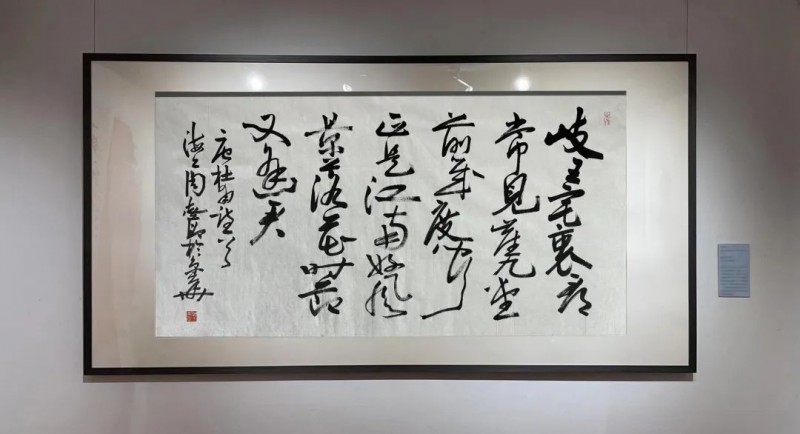 岐王宅裏尋
常見崔九堂
前幾度聞
正是江南好風
景落花時節
又逢君
唐杜甫詩一首
海上周於金華